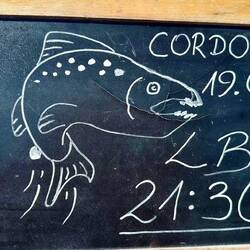 CORDO
19.
LB
21:30